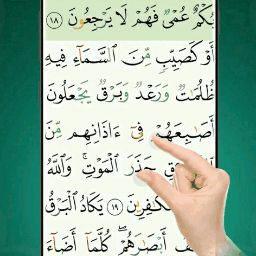 بُكْمٌ عُمْيٌ فَهُمْ لَا يَرْجِعُونَ ١٨
أَوْ كَصَيِّبٍ مِّنَ ٱلسَّمَآءِ فِيهِ
ظُلُمَـٰتٌ وَرَعْدٌ وَبَرْقٌ يَجْعَلُونَ
أَصَـٰبِعَهُمْ فِىٓ ءَاذَانِهِم مِّنَ
حَذَرَ ٱلْمَوْتِ ۚ وَٱللَّهُ
١٩ يَكَادُ ٱلْبَرْقُ
أَبْصَـٰرَهُمْ ۖ كُلَّمَآ أَضَآءَ